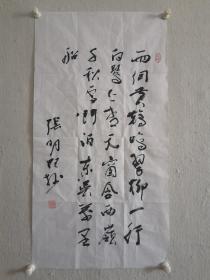 两个黄鹂鸣翠柳一行
白鹭上青天窗含西岭
千秋雪门泊东吴万里
船